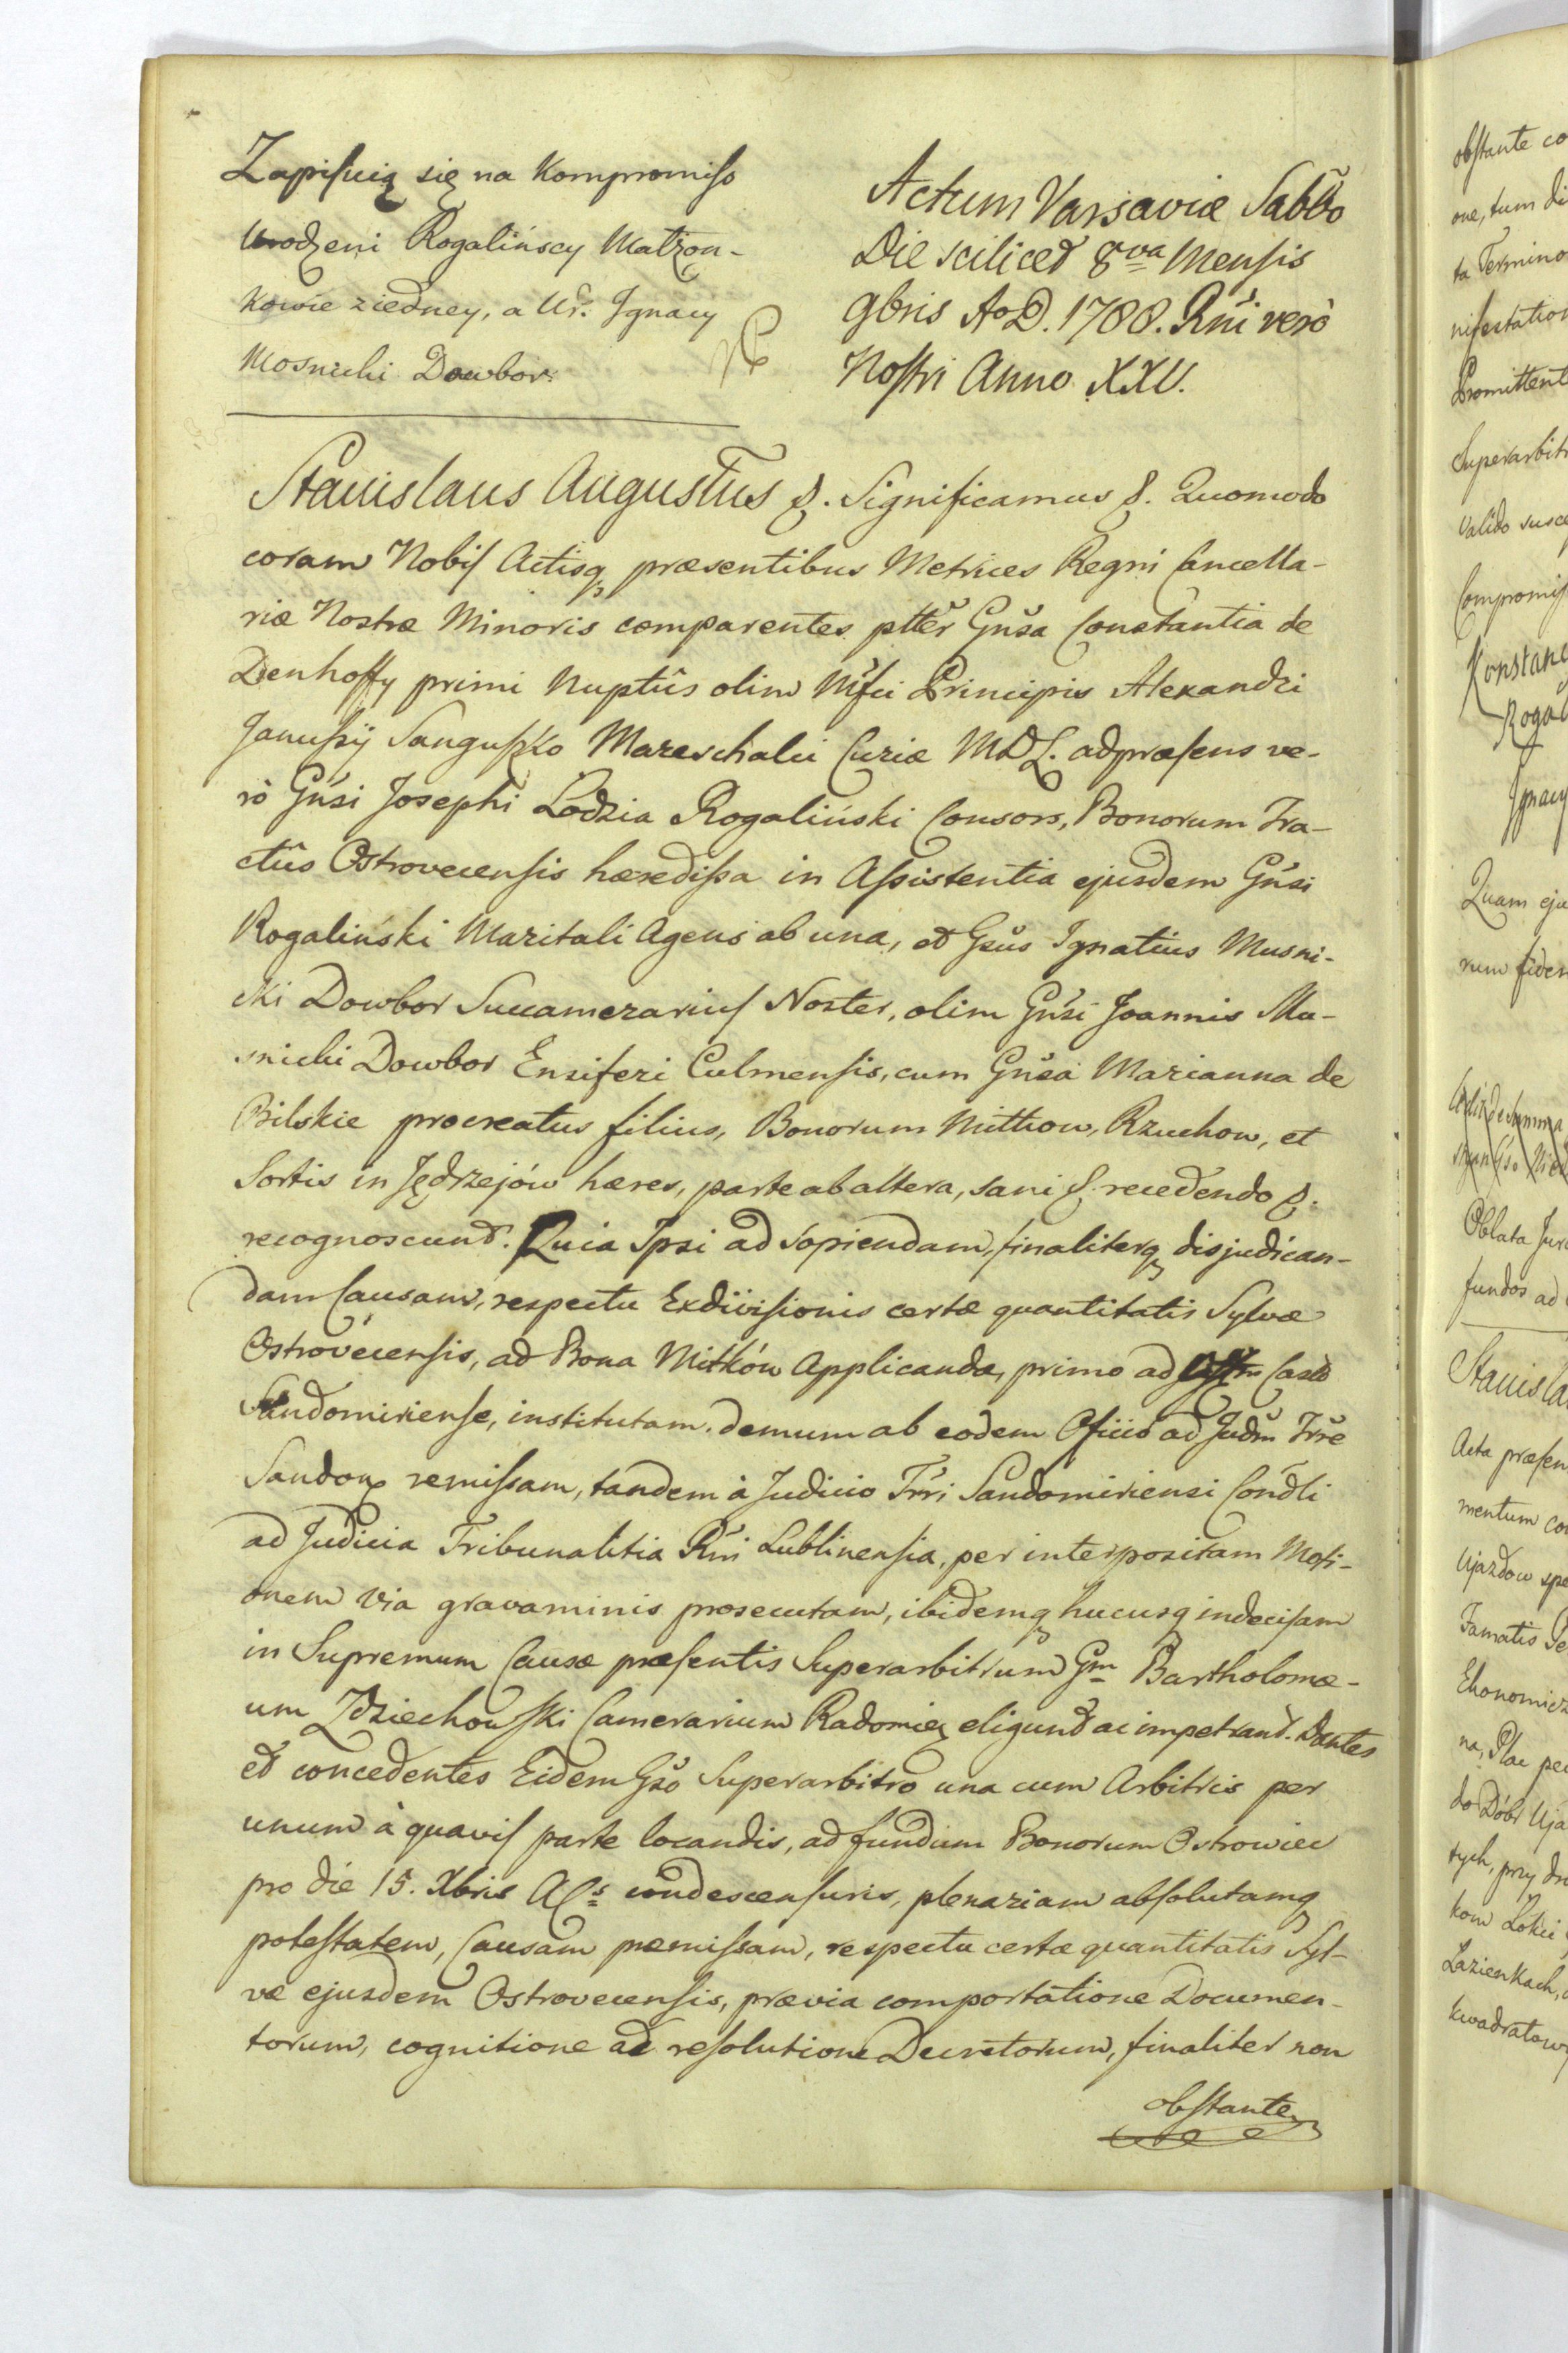 Zapisuią się na Kompromiss
Urodzeni Rogalińscy Małżon-
kowie ziedney, a Ur. Ignacy
Mosnicki Dowbor.
Actum Varsaviæ Sabbo
Die scilicet 8va Mensis
9bris Ao D. 1788. Rni verò
Nostri Anno XXV.
Stanislaus Augustus &. Significamus &. Quomodo
coram Nobis Actisq præsentibus Metrices Regni Cancella-
riæ Nostræ Minoris comparentes ptter Gnsa Constantia de
Denhoffy primi Nuptiis olim Mfci Principis Alexandri
Janussij Sanguszko Mareschalci Curiæ MDL. adpræsens ve-
rò Gnsi Josephi Łodzia Rogaliński Consors, Bonorum Tra-
ctûs Ostrovecensis hæredissa in Assistentia ejusdem Gnsi
Rogaliński Maritali Agens ab una, et Gsus Ignatius Musni-
cki Dowbor Succamerarius Noster, olim Gnsi Joannis Mu-
snicki Dowbor Ensiferi Culmensis, cum Gnsa Marianna de
Bilskie procreatus filius, Bonorum Mitkow, Rzuchow, et
Sortis in Jędrzejów hæres, parte ab altera, sani & recedendo &.
recognoscund. Quia Ipsi ad sopiendam, finaliterq disjudican-
dam Causam, respectu Exdivisionis certæ quantitatis Sylvæ
Ostrovecensis, ad Bona Mitków Applicandæ, primo ad Castr
Sandomiriense, institutam. demum ab eodem Officio ad Judm Trre
Sandom remissam, tandem à Judicio Trri Sandomiriensi Condli
ad Judicia Tribunalitia Rni Lublinensia, per interpositam Moti-
onem via gravaminis prosecutam, ibidemq hucusq indecisam
in Supremum Causæ præsentis Superarbitrum Gm Bartholomæ-
um Zdziechowski Camerarium Radomien eligund ac impetrand. Dantes
et concedentes Eidem Gso Superarbitro una cum Arbitris per
unum à quavis parte locandis, ad fundum Bonorum Ostrowiec
pro die 15. Xbris ACs condescensuris, plenariam absolutamq
potestatem, Causam præmissam, respectu certæ quantitatis Syl-
væ ejusdem Ostrovecensis, prævia comportatione Documen-
torum, cognitione ac resolutione Decretorum, finaliter non
obstante
obstante co
one, tum di
ta Termino
nifestation
Promittent
Superarbit
valido susce
Compromiss
Konstanc
Rogal
Ignacy
Quam eju
rum fidem
Oblata Jur
fundos ad
Stanisla
Acta præsen
mentum co
Ujazdow spe
Famatis Se
Ekonomicz
na, Plac pe
do Dóbr Uja
tych, przy dr
kow Łokci
Łazienkach,
kwadratow